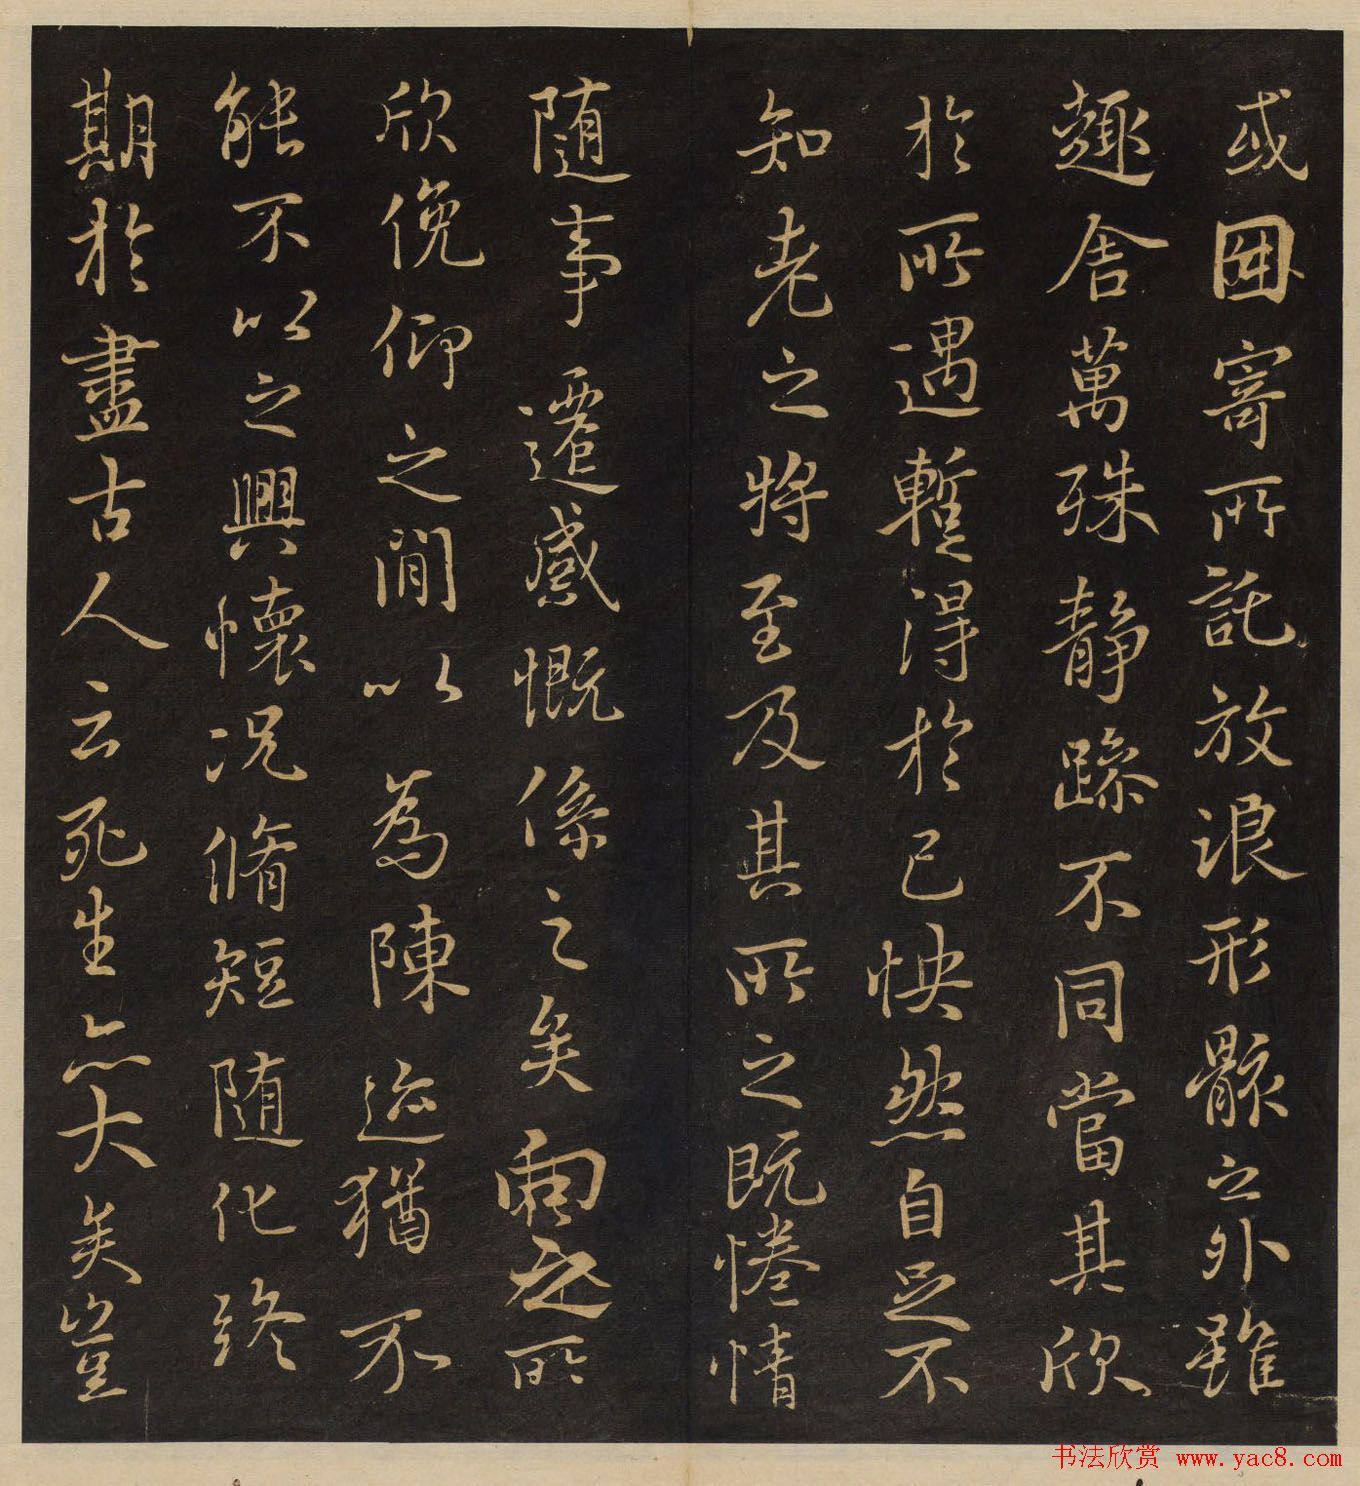 或因寄所託放浪形骸之外雖
趣舍萬殊靜躁不同當其欣
於所遇暫得於己快然自足不
知老之將至及其所之既惓情
隨事遷感慨係之矣向之所
欣俛仰之間以為陳迹猶不
能不以之興懷況脩短隨化終
期於盡古人云死生亦大矣豈
书法欣赏 www.yac8.com